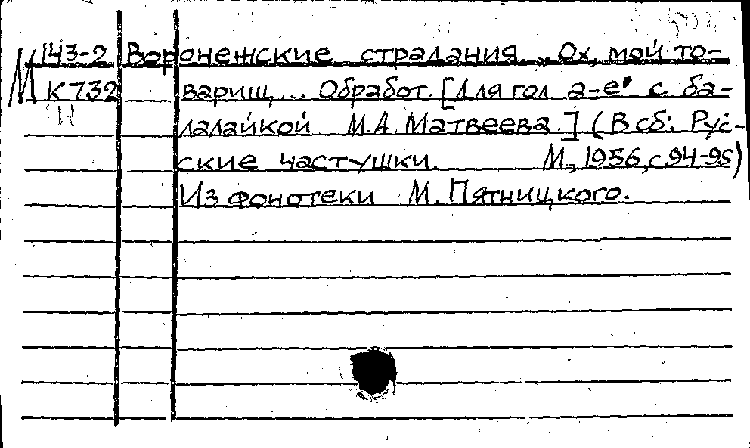 143-2 Воронежские страдания „Ох, мой то-
М К 732 варищ... Обработ. [Для гол a-e' с ба-
лалайкой М.А. Матвеева.] (В сб: Рус-
ские частушки. М., 1956, с 94-95)
Из фонотеки М. Пятницкого.